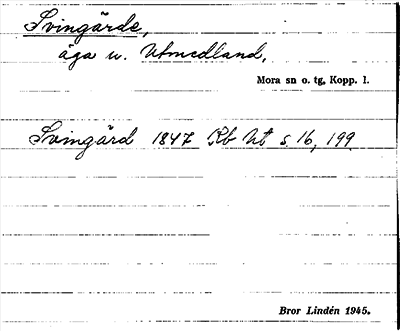 Svingärde,
äga u. Utmedland,
Mora sn o. tg, Kopp. l.
Svingärd 1847 Rb Ut s. 16, 199
Bror Lindén 1945.